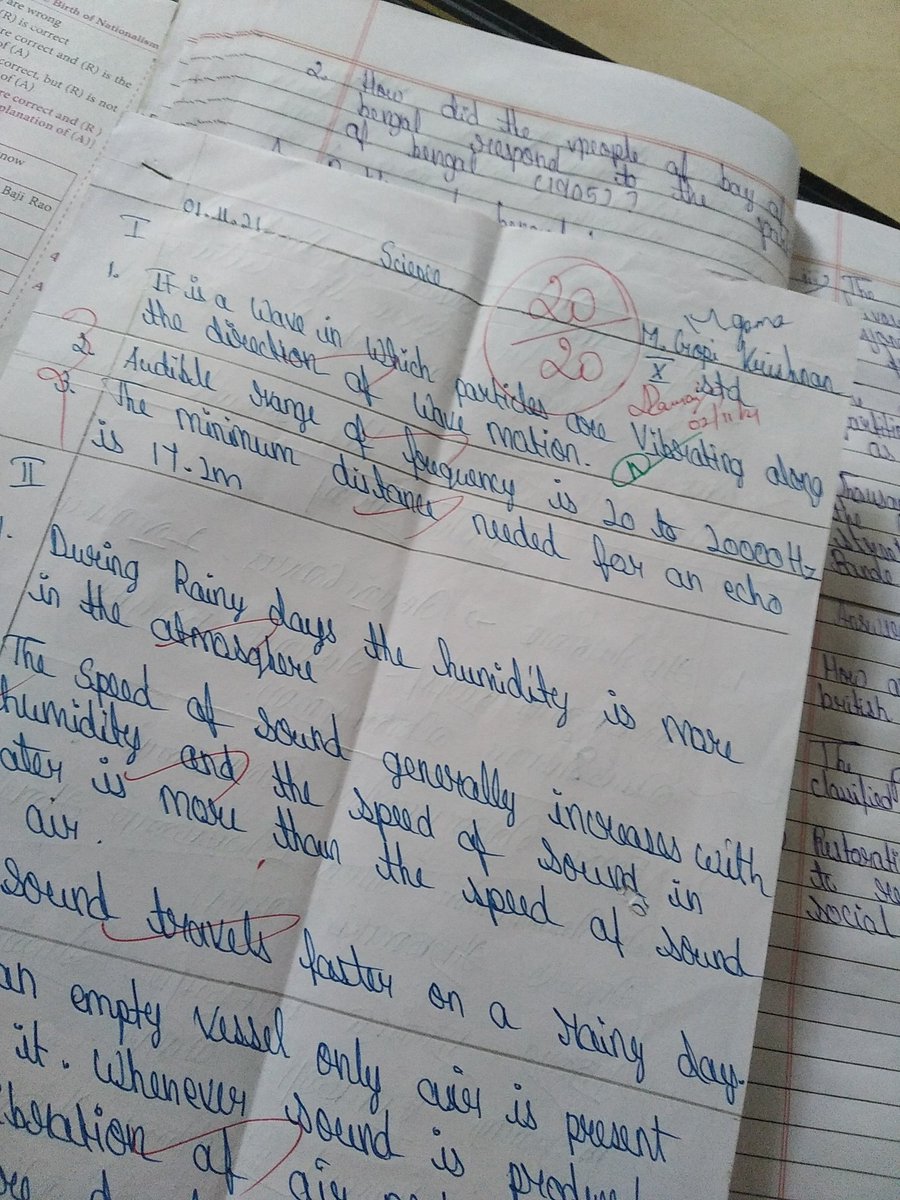 Birth of Nationalism
are wrong
(R) is correct
re correct and (R) is the
of (A)
correct, but (R) is not
of (A)
re correct and (R)
planation of (A)
now
Baji Rao
4
A
2. How did the people of bay of
bengal respond to the
of bengal (1905)?
01.11.21
Science
20
20
M. Gopi Krishnan
X std
02/11/21
I
1. It is a wave in which particles are Vibrating along
the direction of wave motion.
2. Audible range of frequency is 20 to 20000Hz
3. The minimum distance needed for an echo
is 17.2m
II
1. During Rainy days the humidity is more
in the atmosphere
The speed of sound generally increases with
humidity and the speed of sound in
ater is more than the speed of sound
air.
sound travels faster on a rainy day.
an empty vessel only air is present
it. Whenever sound is produ
ibration of air
The
as
Bande
How a
british
The
classified
Restorati
to re
social